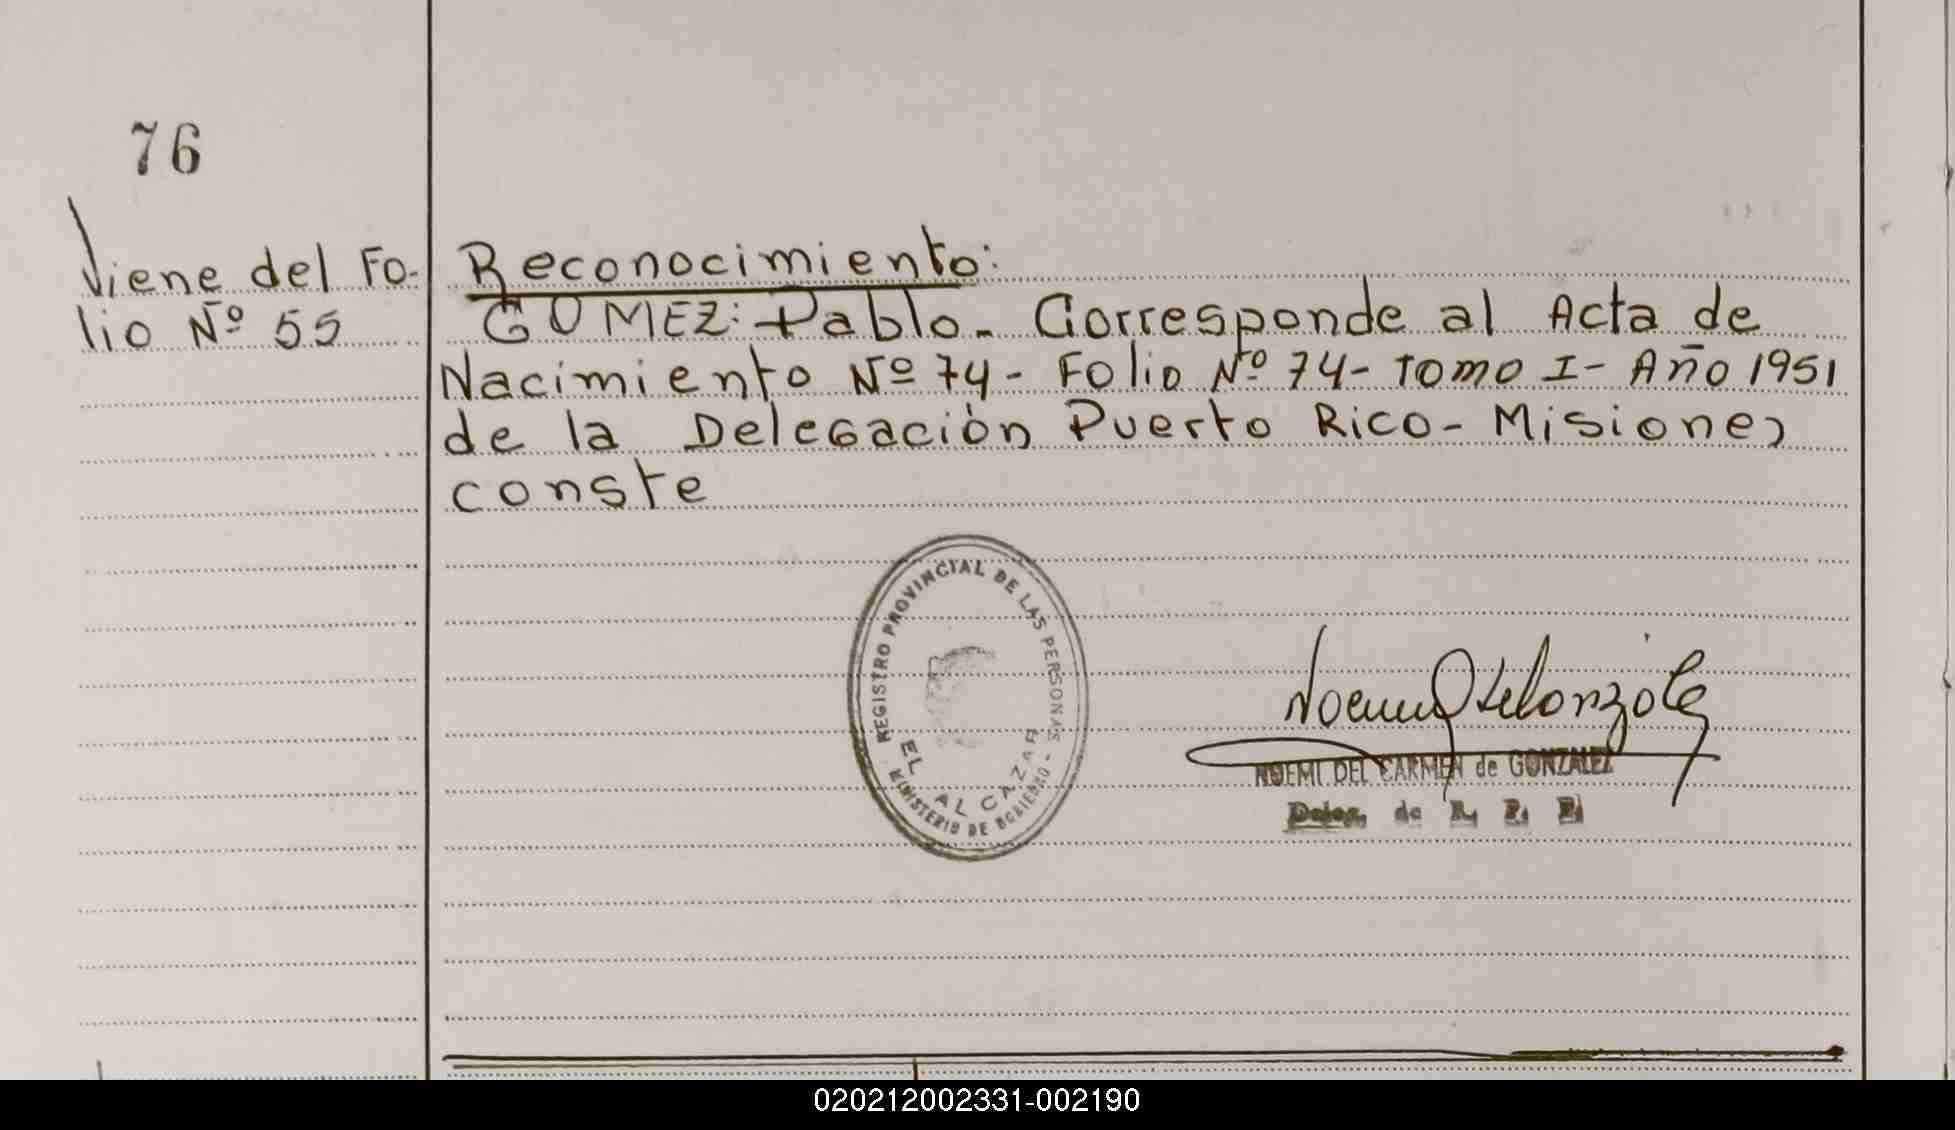 76
Viene del Fo-
lio Nº 55
Reconocimiento:
GOMEZ: Pablo. Corresponde al Acta de
Nacimiento Nº 74 - Folio Nº 74 - Tomo I - Año 1951
de la Delegación Puerto Rico - Misiones
conste
REGISTRO PROVINCIAL DE LAS PERSONAS -
EL ALCAZAR
MINISTERIO DE GOBIERNO -
NOEMI DEL CARMEN de GONZALEZ
Deleg. de R. P. P.
020212002331-002190